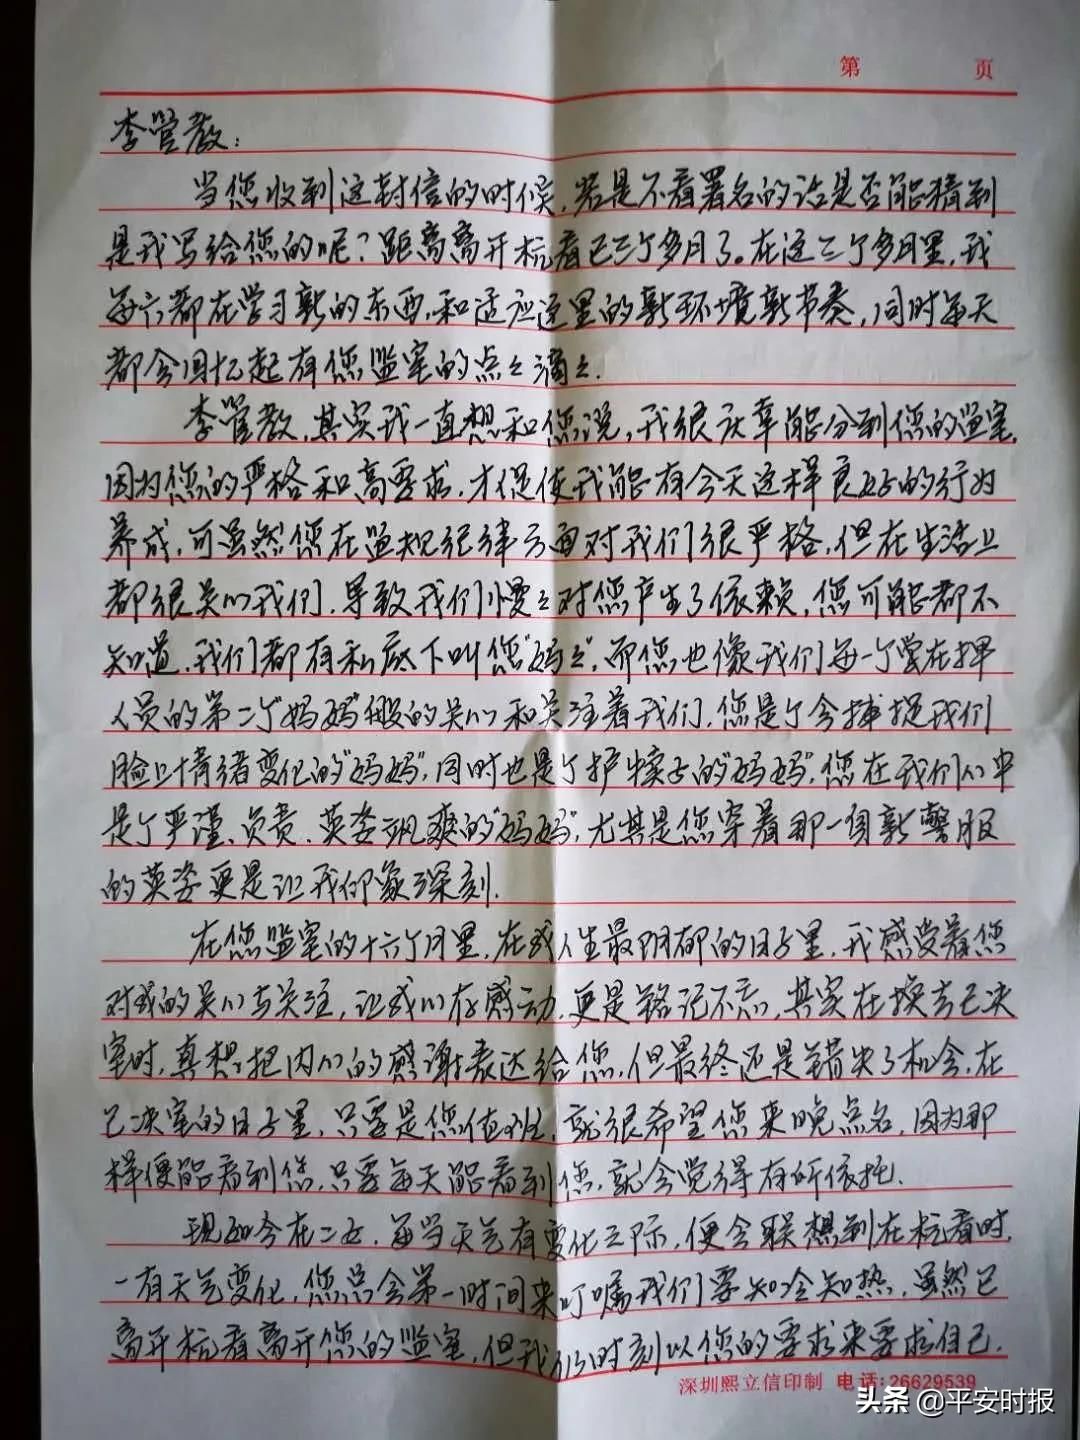 第 页
李管教：
当您收到这封信的时候，若是不看署名的话是否能猜到
是我写给您的呢？距离离开杭看已三个多月了。在这三个多月里，我
每天都在学习新的东西，和适应这里的新环境新节奏，同时每天
都会回忆起有您监室的点々滴々.
李管教，其实我一直想和您说，我很庆幸能分到您的监室，
因为您的严格和高要求，才促使我能有今天这样良好的行为
养成，可虽然您在监规纪律方面对我们很严格，但在生活上
都很关心我们，导致我们慢々对您产生了依赖，您可能都不
知道，我们都有私底下叫您"妈々"，而您也像我们每一个曾在押
人员的第二个"妈妈"般的关心和关注着我们，您是个会捕捉我们
脸上情绪变化的"妈妈"，同时也是个护犊子的"妈妈"，您在我们心中
是个严谨、负责、英姿飒爽的"妈妈"，尤其是您穿着那一身新警服
的英姿更是让我印象深刻.
在您监室的十六个月里，在我人生最阴郁的日子里，我感受着您
对我的关心与关注，让我心存感动，更是铭记不忘，其实在换去已决
室时，真想把内心的感谢表达给您，但最终还是错失了机会，在
已决室的日子里，只要是您值班，就很希望您来晚点名，因为那
样便能看到您，只要每天能看到您，就会觉得有所依托.
现如今在二女，每当天气有变化之际，便会联想到在杭看时，
一有天气变化，您总会第一时间来叮嘱我们要知冷知热，虽然已
离开杭看离开您的监室，但我仍时刻以您的要求来要求自己.
深圳熙立信印制 电话:26629539
头条 @平安时报